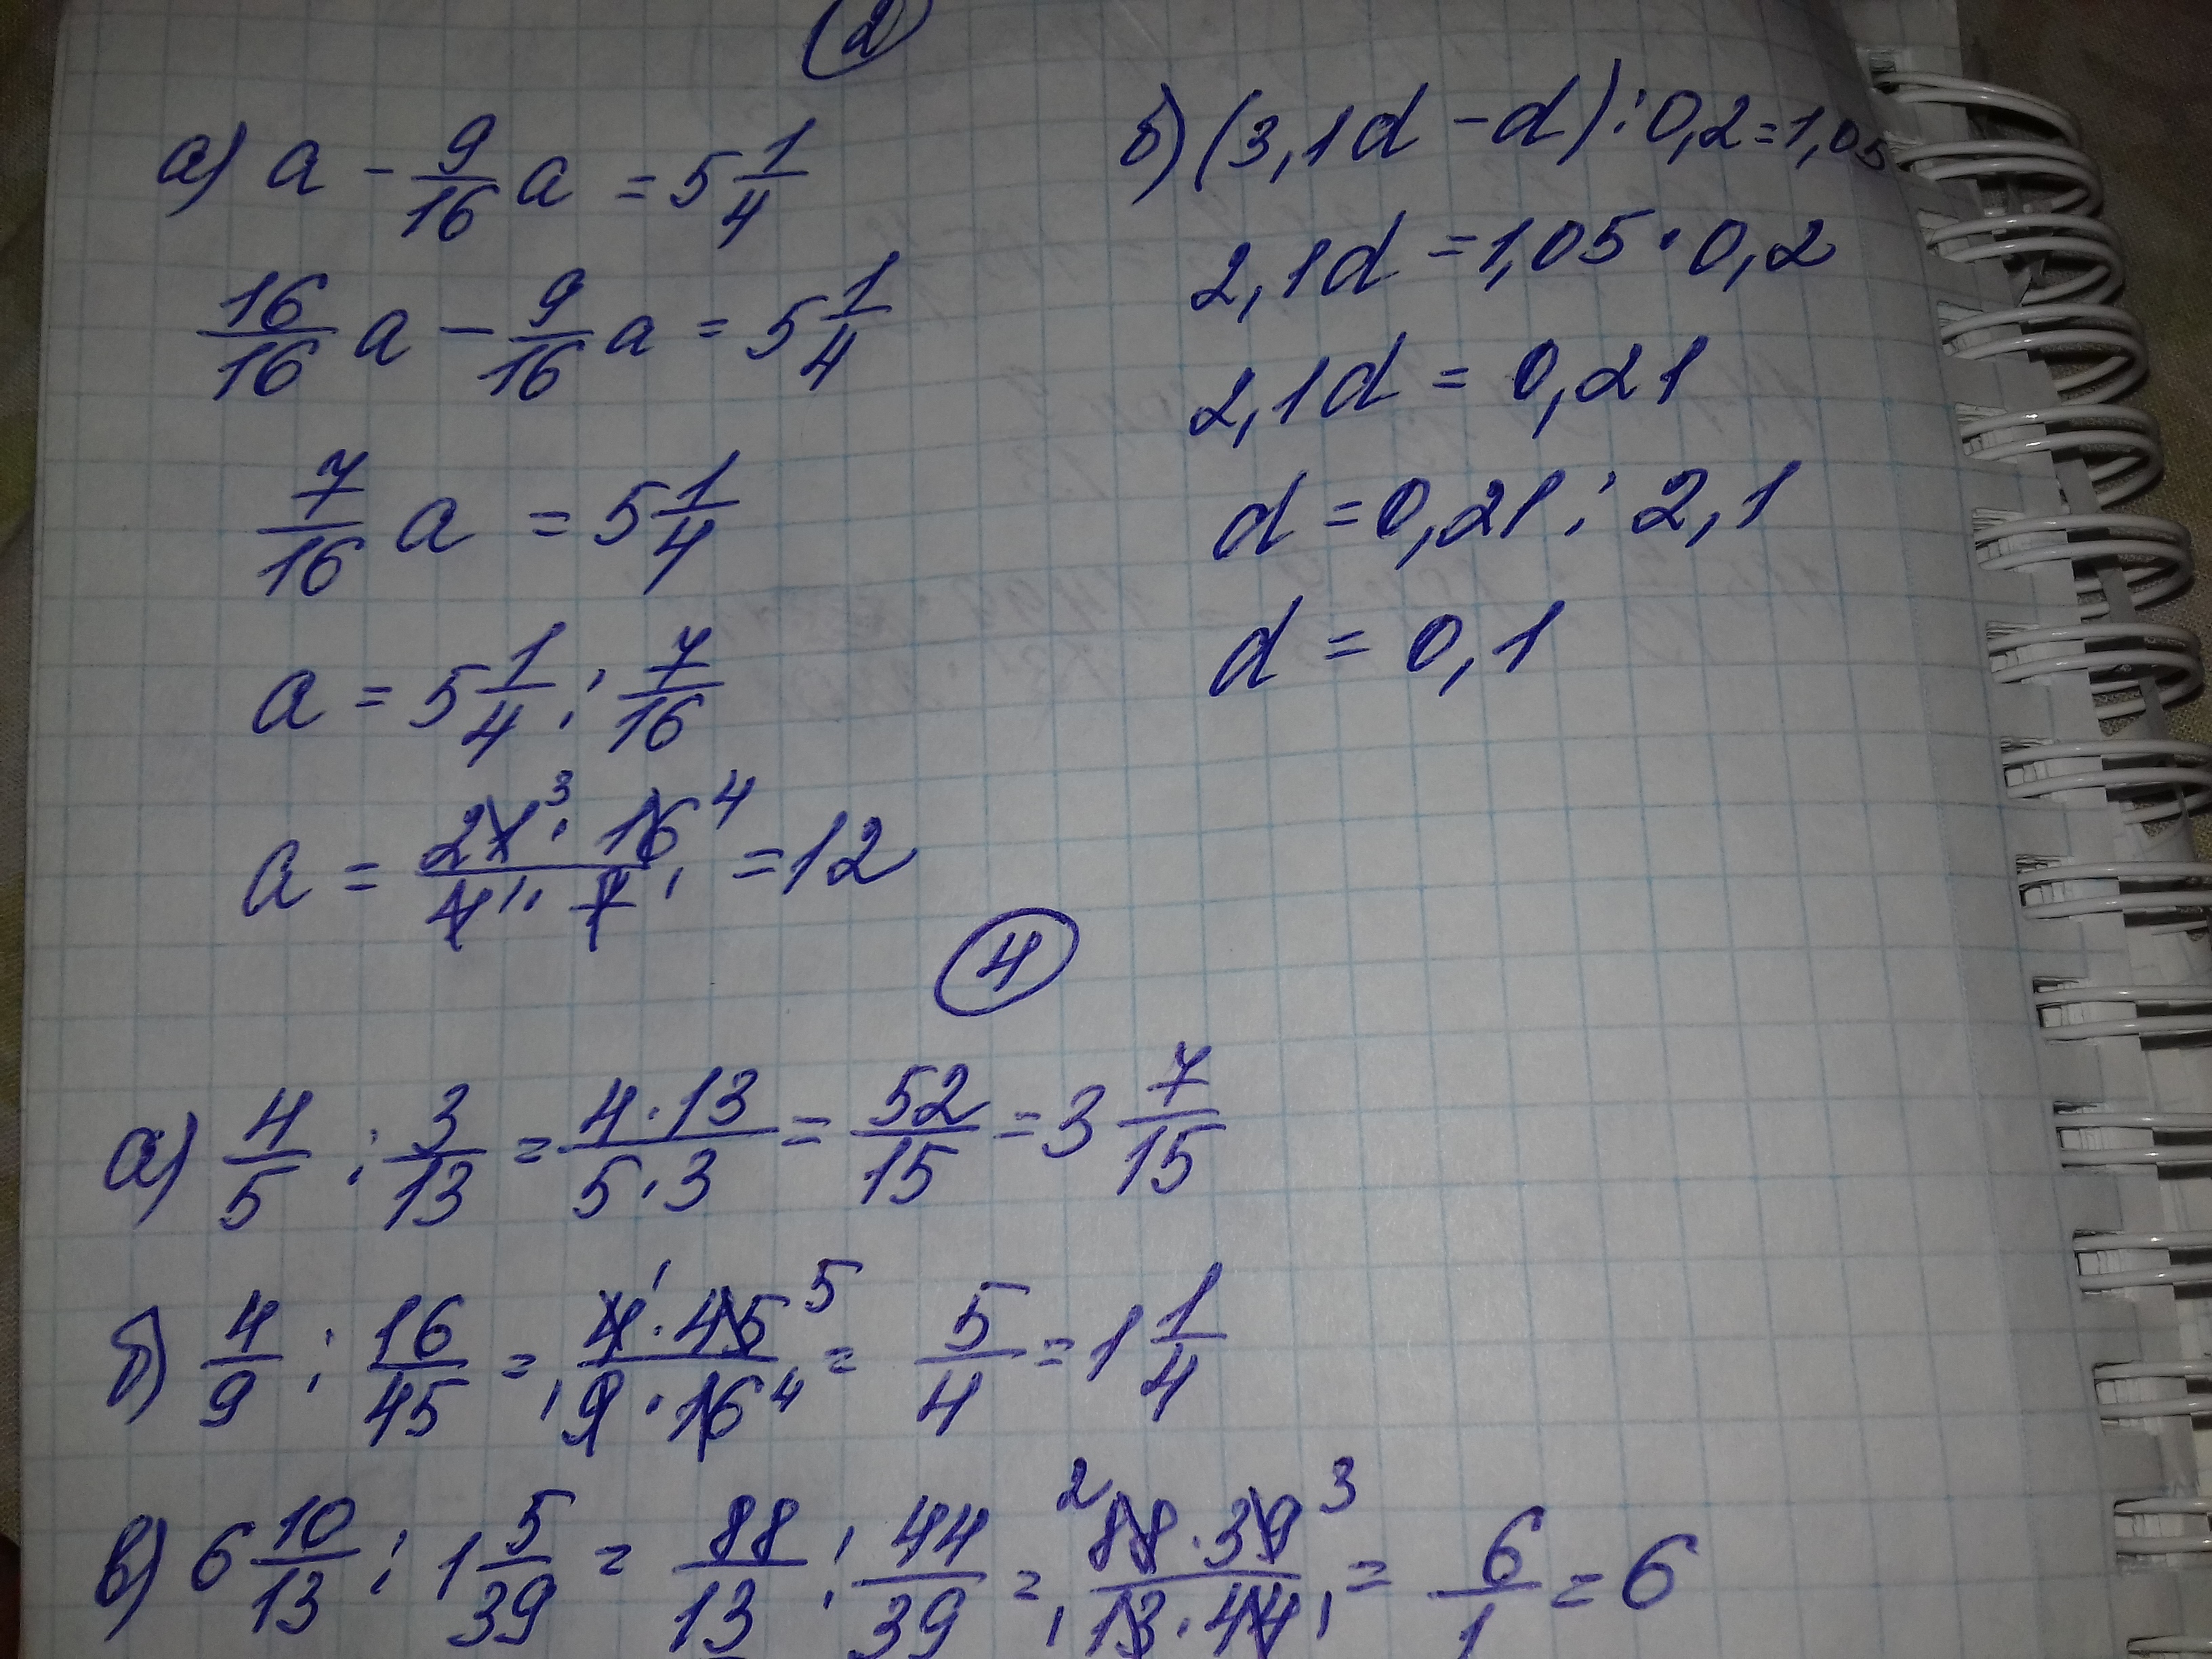 2
а) a - 9/16 a = 5 1/4
16/16 a - 9/16 a = 5 1/4
7/16 a = 5 1/4
a = 5 1/4 : 7/16
a = 21³ · 16⁴ / 4¹ · 7¹ = 12
б) (3,1d - d) : 0,2 = 1,05
2,1d = 1,05 · 0,2
2,1d = 0,21
d = 0,21 : 2,1
d = 0,1
4
а) 4/5 : 3/13 = 4·13 / 5·3 = 52/15 = 3 7/15
б) 4/9 : 16/45 = 4¹ · 45⁵ / ¹9 · 16⁴ = 5/4 = 1 1/4
в) 6 10/13 : 1 5/39 = 88/13 : 44/39 = ²88 · 39³ / ¹13 · 44¹ = 6/1 = 6